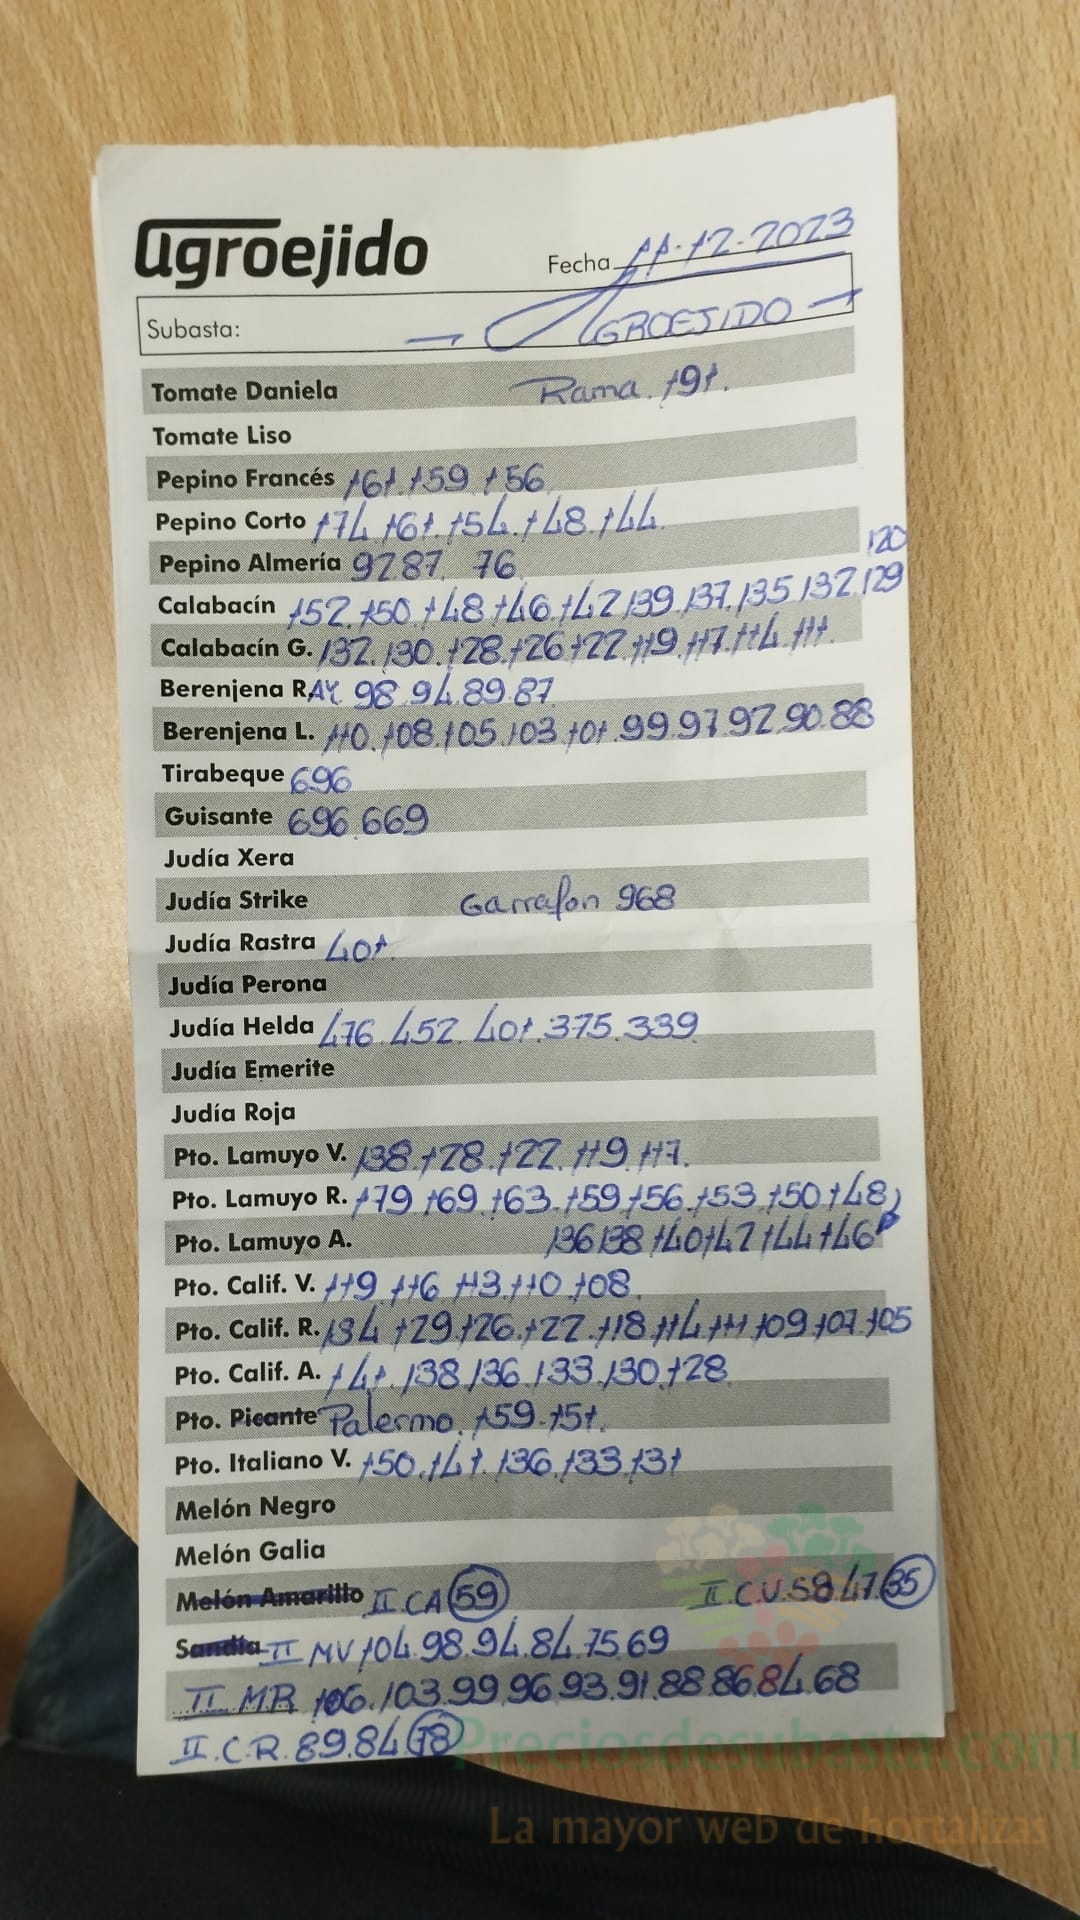 agroejido
Fecha 11-12-2023
Subasta: - AGROEJIDO -
Tomate Daniela Rama. 191.
Tomate Liso
Pepino Francés 161. 159 156
Pepino Corto 174. 161. 154. 148. 144.
Pepino Almería 92 87. 76
120
Calabacín 152. 150. 148 146. 142 139. 137. 135 132. 129
Calabacín G. 132. 130. 128. 126 122. 119. 117. 114. 111.
Berenjena R.AY. 98. 94. 89. 87.
Berenjena L. 110. 108. 105. 103. 101. 99. 97. 92. 90. 88
Tirabeque 696
Guisante 696. 669
Judía Xera
Judía Strike Garrafon 968
Judía Rastra 401.
Judía Perona
Judía Helda 476. 452. 401. 375. 339
Judía Emerite
Judía Roja
Pto. Lamuyo V. 138. 128. 122. 119. 117.
Pto. Lamuyo R. 179 169. 163. 159. 156. 153. 150. 148
Pto. Lamuyo A. 136 138 140 142 144 146
Pto. Calif. V. 119. 116 113. 110 108.
Pto. Calif. R. 134 129. 126. 122. 118. 114. 111 109. 107. 105
Pto. Calif. A. 141. 138. 136. 133. 130. 128.
Pto. Picante Palermo. 159. 151.
Pto. Italiano V. 150. 141. 136. 133. 131
Melón Negro
Melón Galia
Melón Amarillo II CA 59 II C.V. 58 47. 35
Sandía II MV 104. 98. 94. 84. 75. 69
II. M.R 106. 103. 99. 96. 93. 91. 88. 86. 84. 68
II. C. R. 89. 84. 78
Preciosdesubasta.com
La mayor web de hortalizas